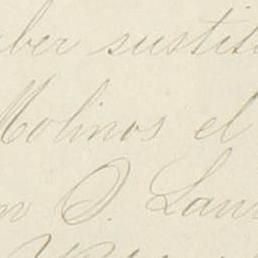 ber sustit
Molinos el
n D. Laur